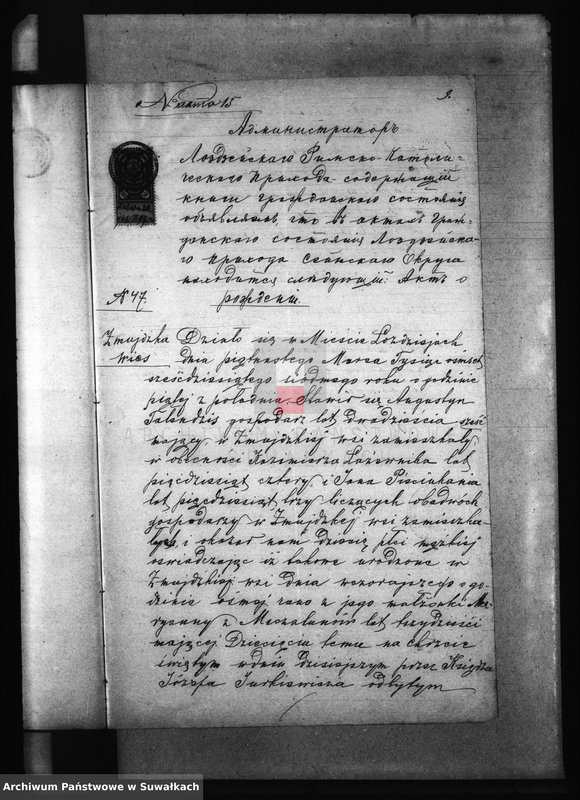 № акта 15
9.
Администраторъ
Лоздзейскаго Римско-Католи-
ческаго прихода содержащій
книги гражданскаго состоянія
объявляетъ, что въ актахъ граж-
данскаго состоянія Лоздзейска-
го прихода Сейнскаго Округа
находится слѣдующій: Актъ о
рожденіи.
№ 47.
Żmujdzka
Wies
Działo się w Mieście Łozdziejach
dnia piętnastego Marca Tysiąc ośmset
sześćdziesiątego siódmego roku o godzinie
piątej z południa. Stawił się Augustyn
gospodarz lat dwadzieścia sześć
mający w Żmujdzkiej wsi zamieszkały
w obecności Kazimierza Łazownika lat
pięćdziesiąt cztery i Jana
lat pięćdziesiąt trzy liczących obudwóch
gospodarzy w Żmujdzkiej wsi zamieszka-
łych, i okazał nam dziecię płci męzkiej
oświadczając iż takowe urodzone w
Żmujdzkiej wsi dnia wczorajszego o go-
dzinie ósmej rano z jego małżonki Ma-
ryanny z lat trzydzieści
mającej Dziecięciu temu na chrzcie
świętym w dniu dzisiejszym przez Księdza
Józefa Jurkiewicza odbytym
Archiwum Państwowe w Suwałkach